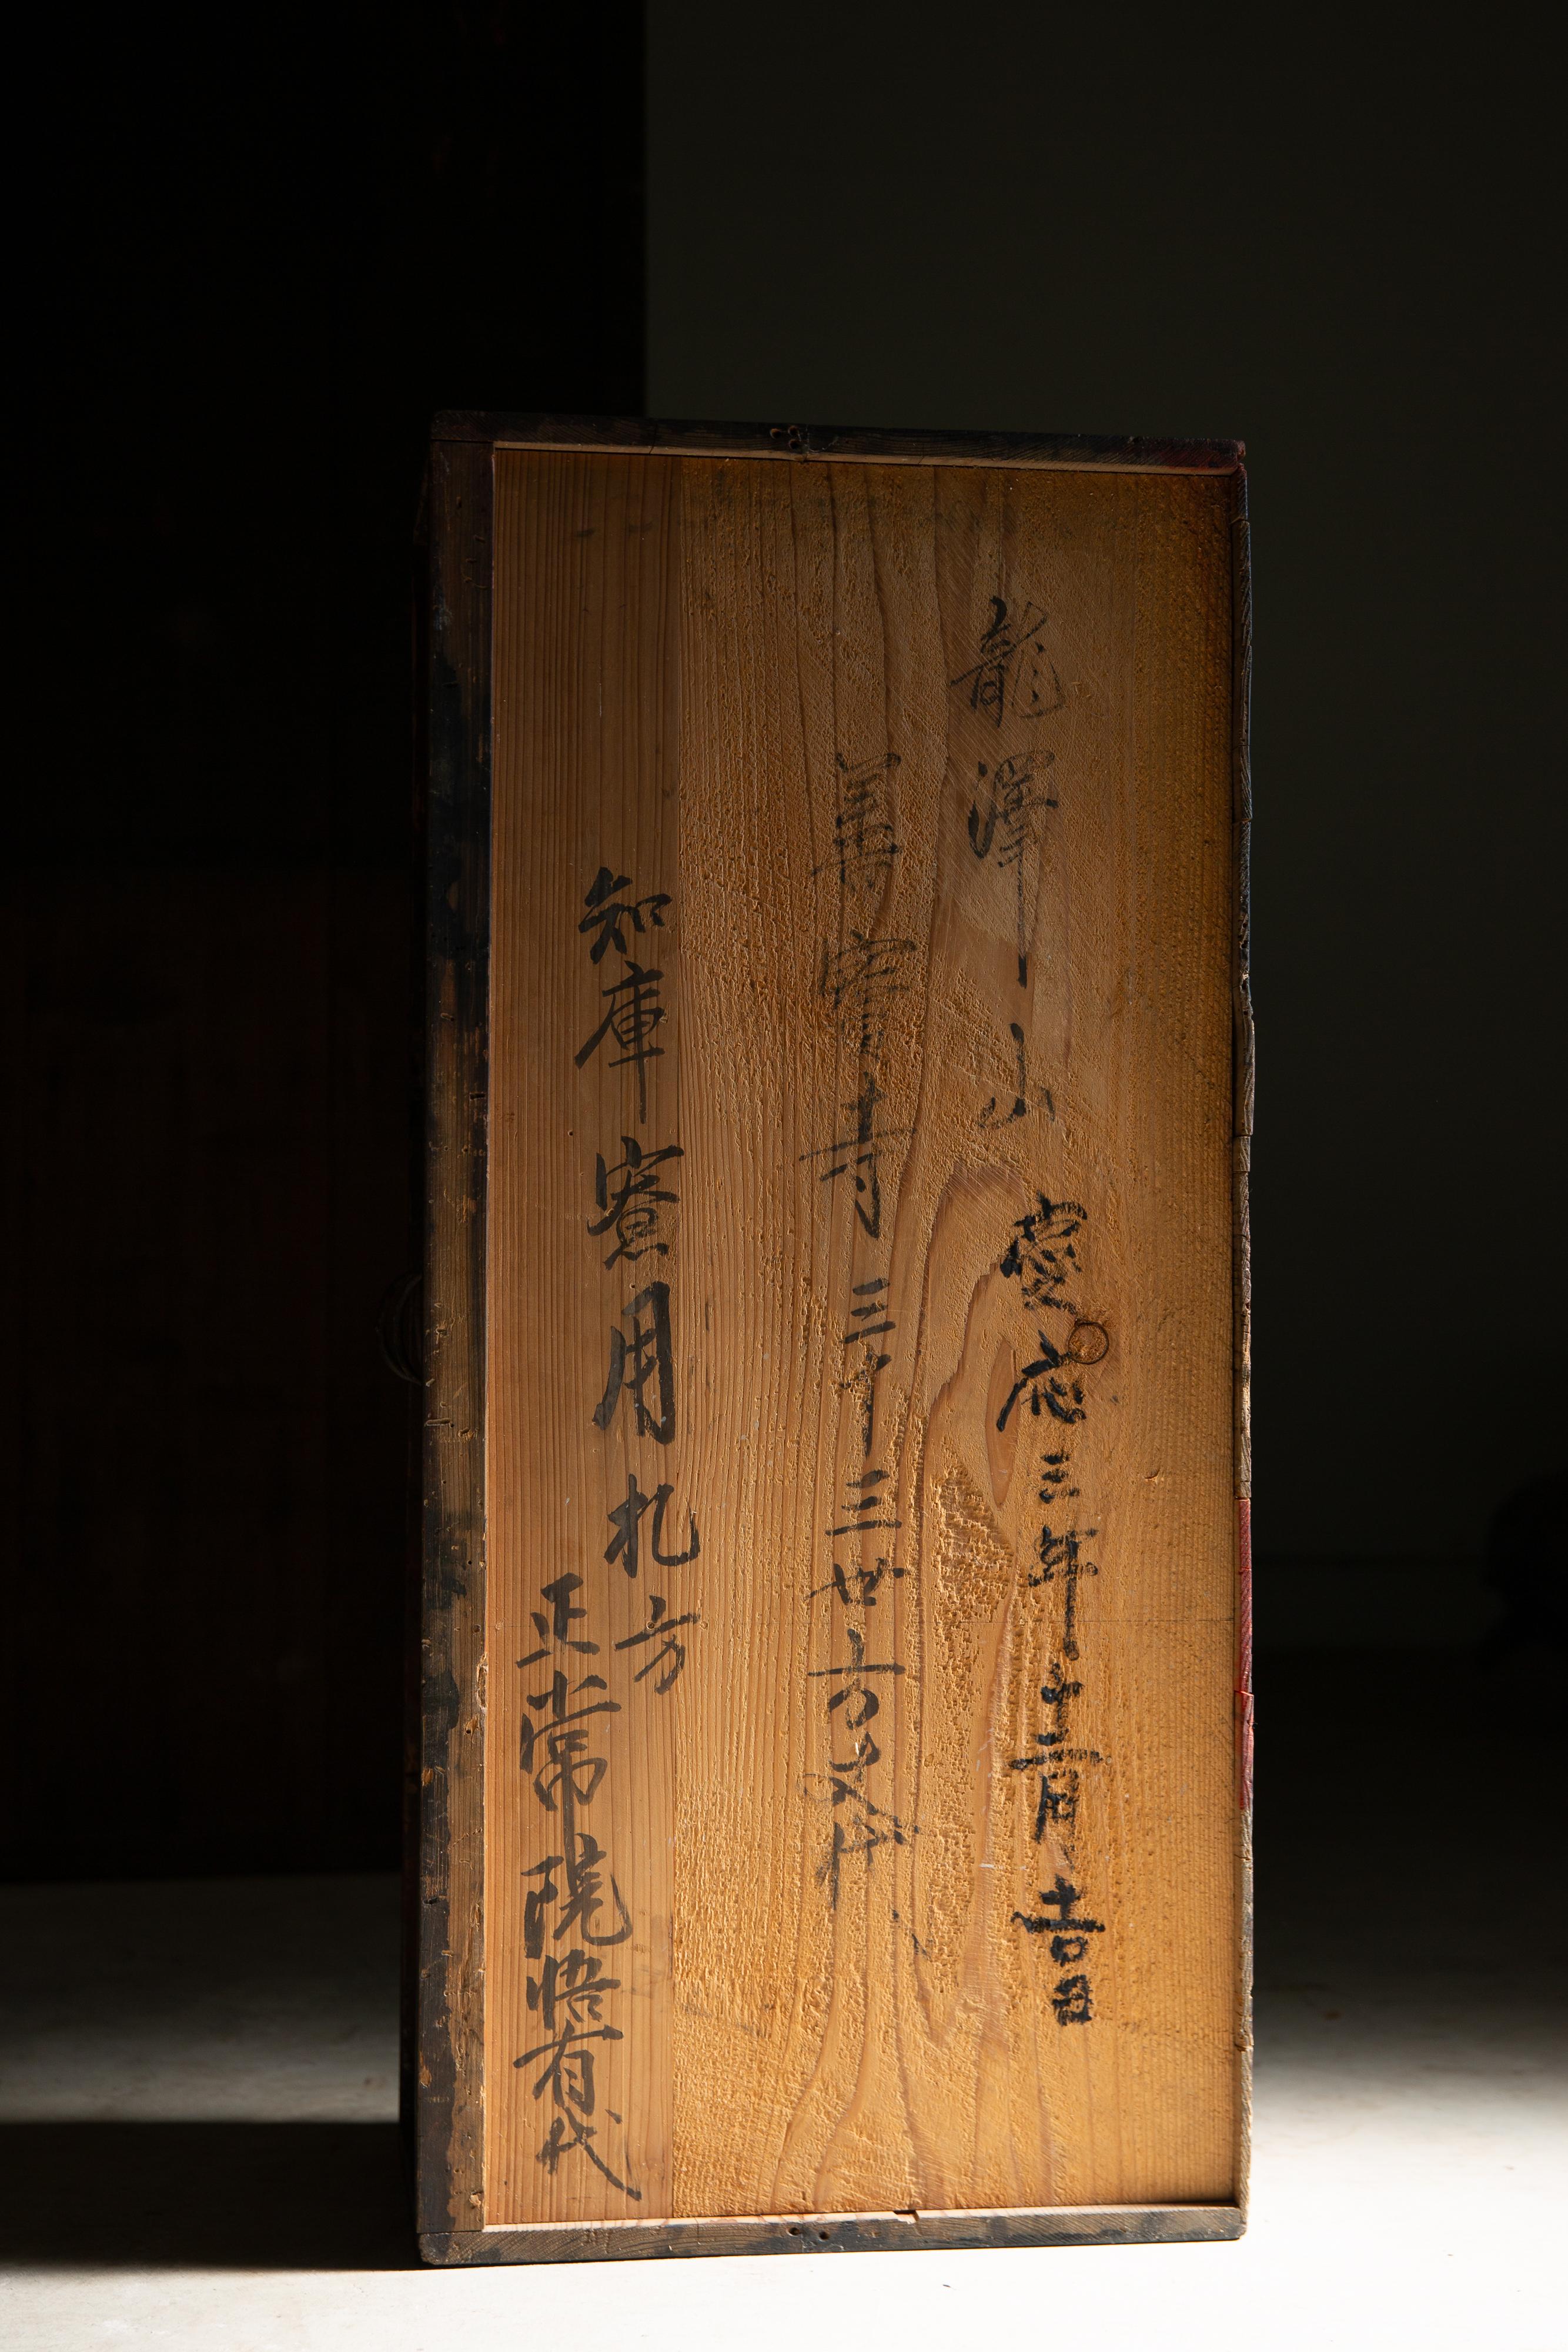 龍澤山
慶応三年十二月吉日
善寳寺三十三世方丈代
知庫寮用札方
正常院悟有代